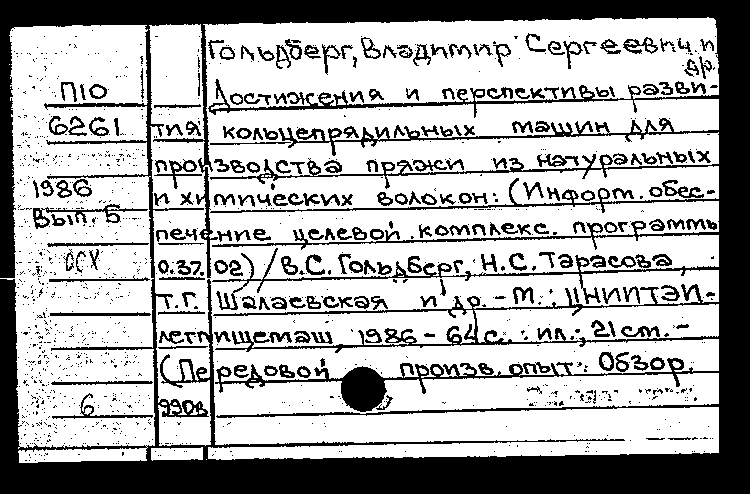 Гольдберг, Владимир Сергеевич и др.
П10 Достижения и перспективы разви-
6261 тия кольцепрядильных машин для
производства пряжи из натуральных
1986 и химических волокон: (Информ. обес-
Вып. 5 печение целевой комплекс. программы
ОСК 0.37.02) / В.С. Гольдберг, Н.С. Тарасова,
Т.Г. Шалаевская и др. - М.: ЦНИИТЭИ-
легпищемаш, 1986 - 64 с. : ил.; 21 см. -
(Передовой произв. опыт: Обзор.
6